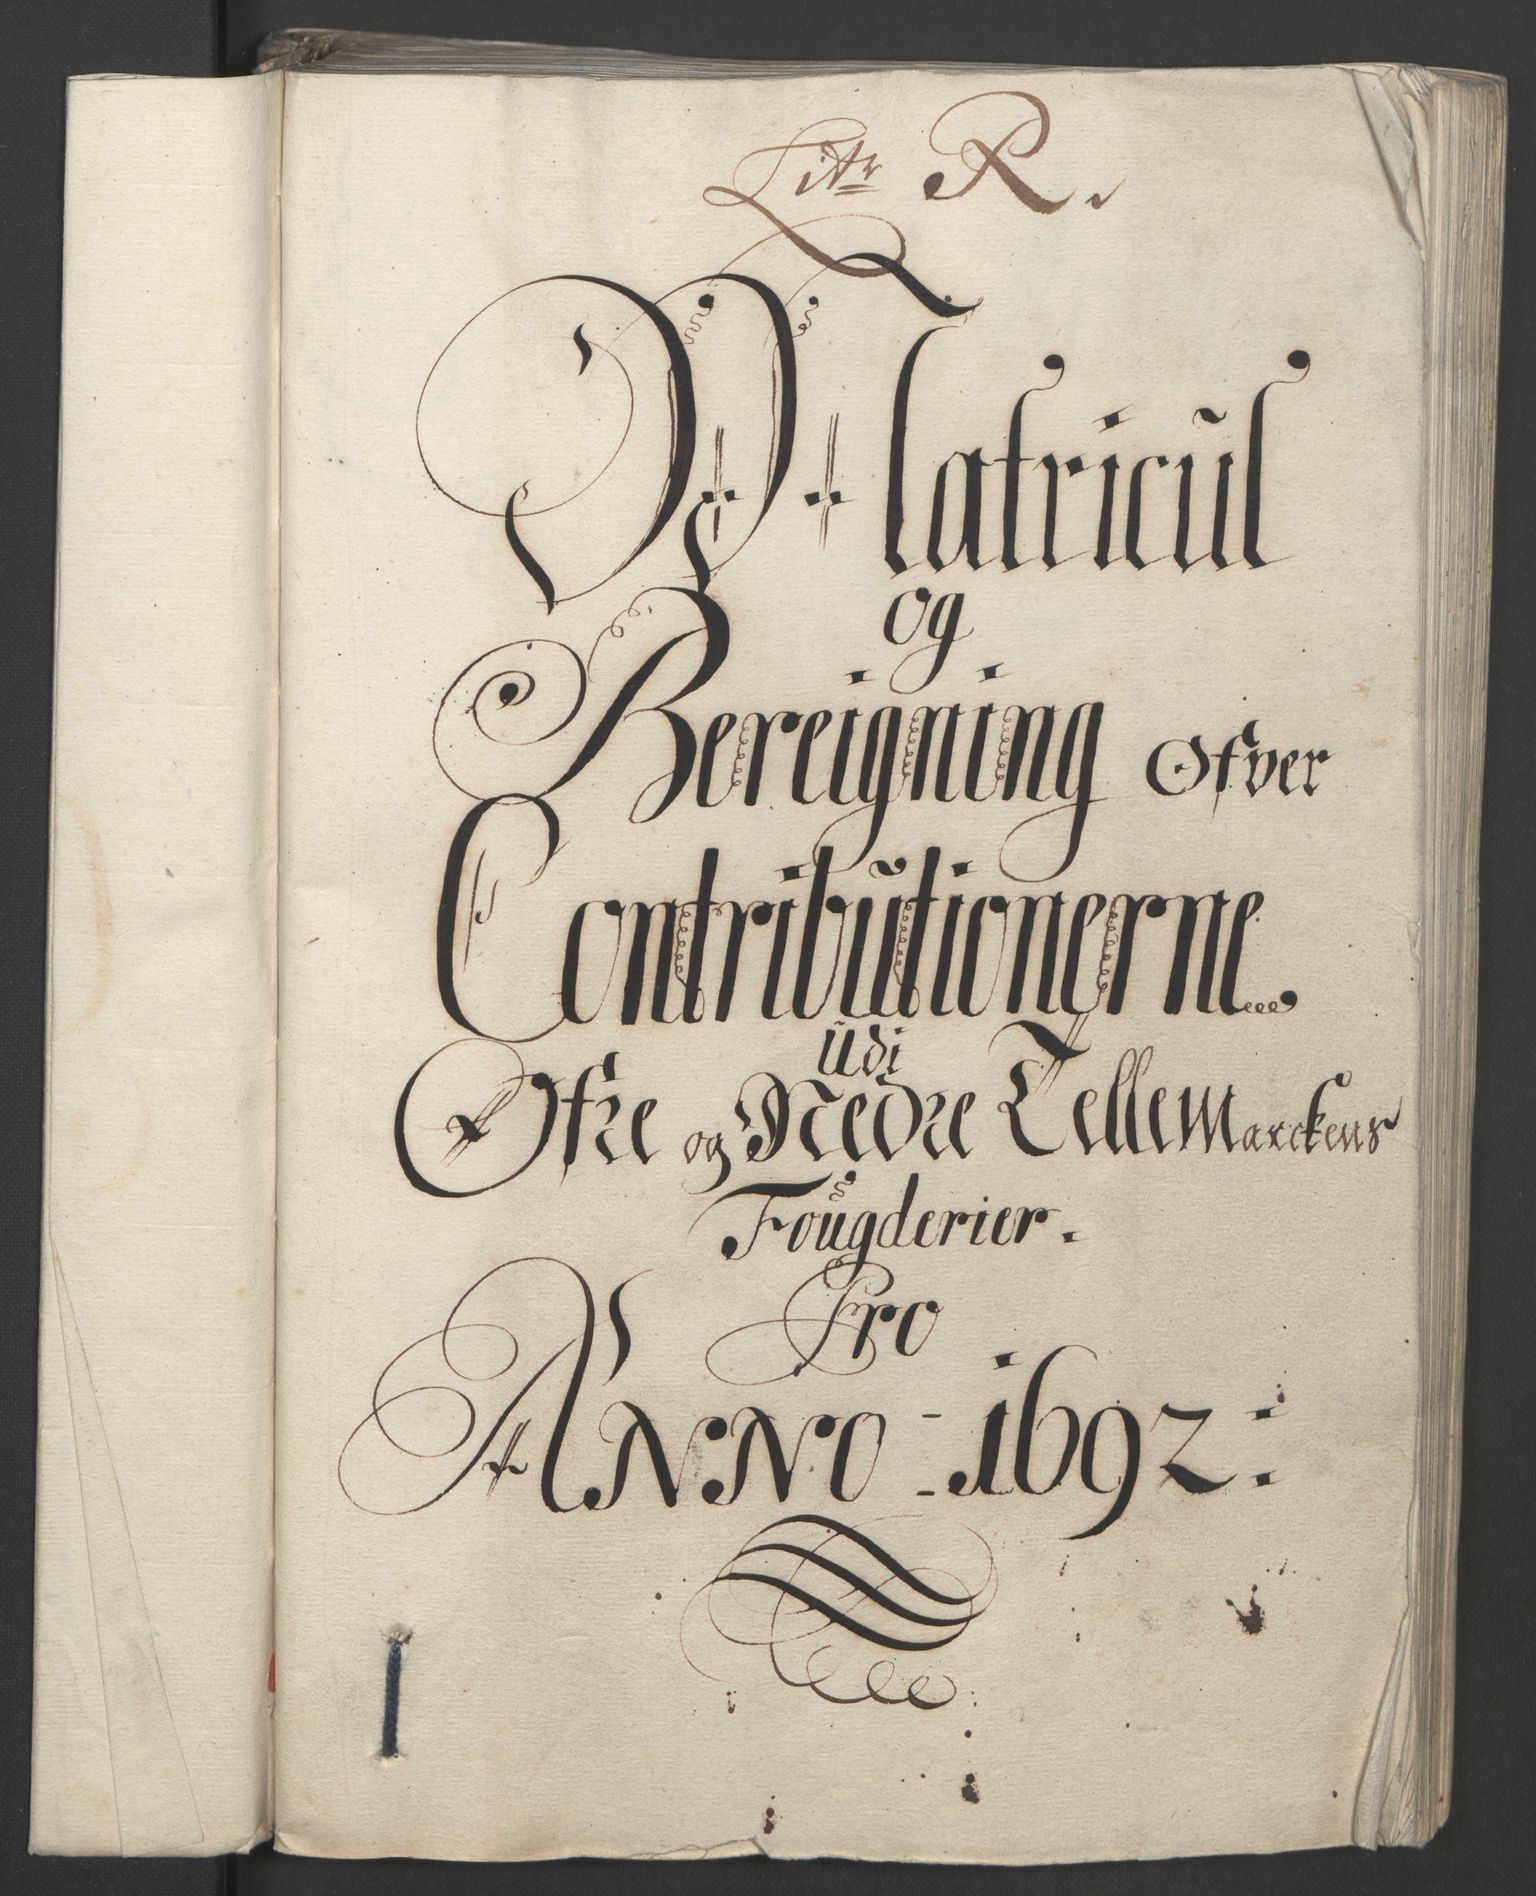 Litr R.
Matricul
og
Bereigning Ofver
Contributionerne
Udi
Øfre og Nedre Tellemarckens
Fougderier.
Pro
Anno - 1692: